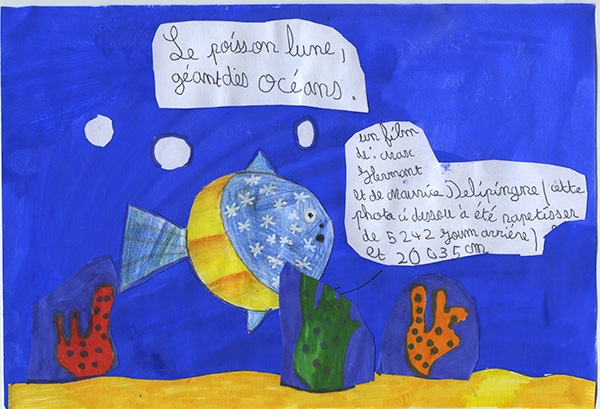 Le poisson lune,
géant des océans.
un film
de: Marc
Hermant
et de Maurice Delépingne / cette
photo ci dessou a été rapetisser
de 5242
et 20 035 cm